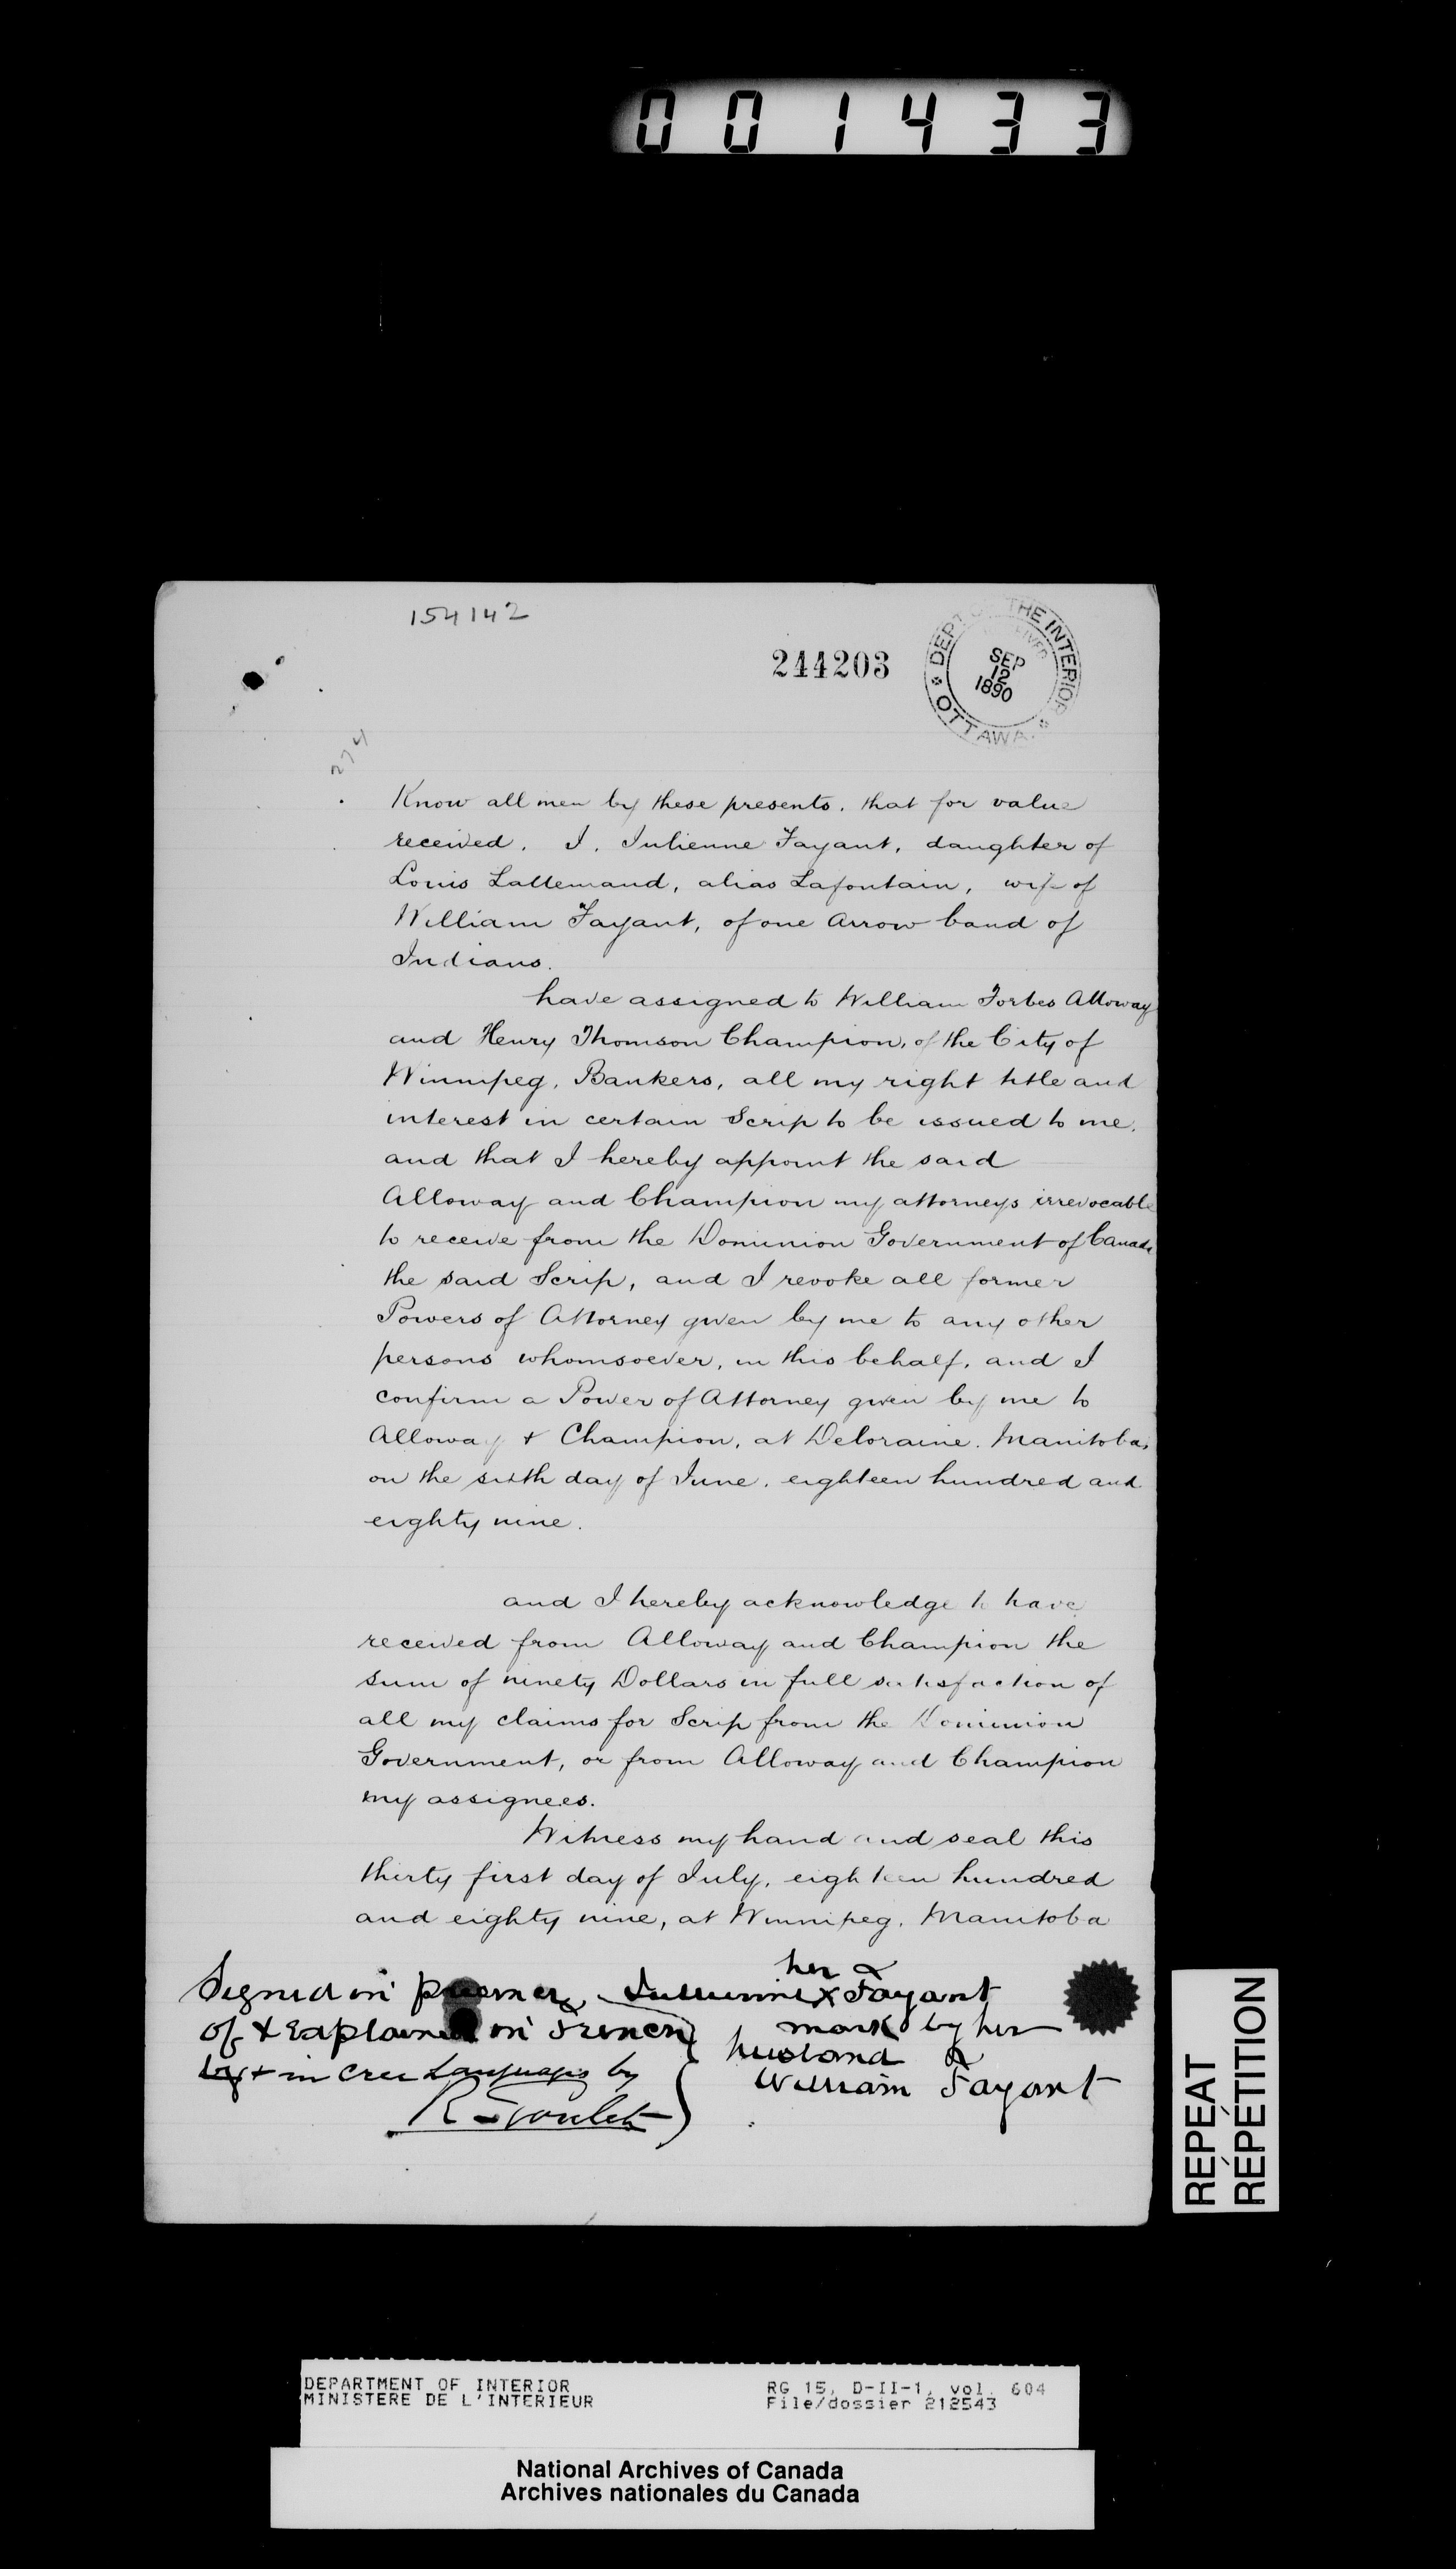 001433
154142
244203
DEPT OF THE INTERIOR
RECEIVED
SEP
12
1890
OTTAWA.
274
Know all men by these presents. that for value
received. I. Julienne Fayant, daughter of
Louis Lallemand, alias Lafontain, wife of
William Fayant, of one Arrow band of
Indians.
have assigned to William Forbes Alloway
and Henry Thomson Champion, of the City of
Winnipeg, Bankers, all my right title and
interest in certain Scrip to be issued to me.
and that I hereby appoint the said
Alloway and Champion my attorneys irrevocable
to receive from the Dominion Government of Canada
the said Scrip, and I revoke all former
Powers of Attorney given by me to any other
persons whomsoever, in this behalf, and I
confirm a Power of Attorney given by me to
Alloway & Champion, at Deloraine. Manitoba,
on the sixth day of June. eighteen hundred and
eighty nine.
and I hereby acknowledge to have
received from Alloway and Champion the
sum of ninety Dollars in full satisfaction of
all my claims for Scrip from the Dominion
Government, or from Alloway and Champion
my assignees.
Witness my hand and seal this
thirty first day of July, eighteen hundred
and eighty nine, at Winnipeg. Manitoba
her
Signed in Julienne X Fayant
of & Explained in French mark by her
husband
by & in Cree Languages by
William Fayant
R Goulet
REPEAT
RÉPÉTITION
DEPARTMENT OF INTERIOR RG 15, D-II-1, vol. 604
MINISTERE DE L'INTERIEUR File/dossier 212543
National Archives of Canada
Archives nationales du Canada